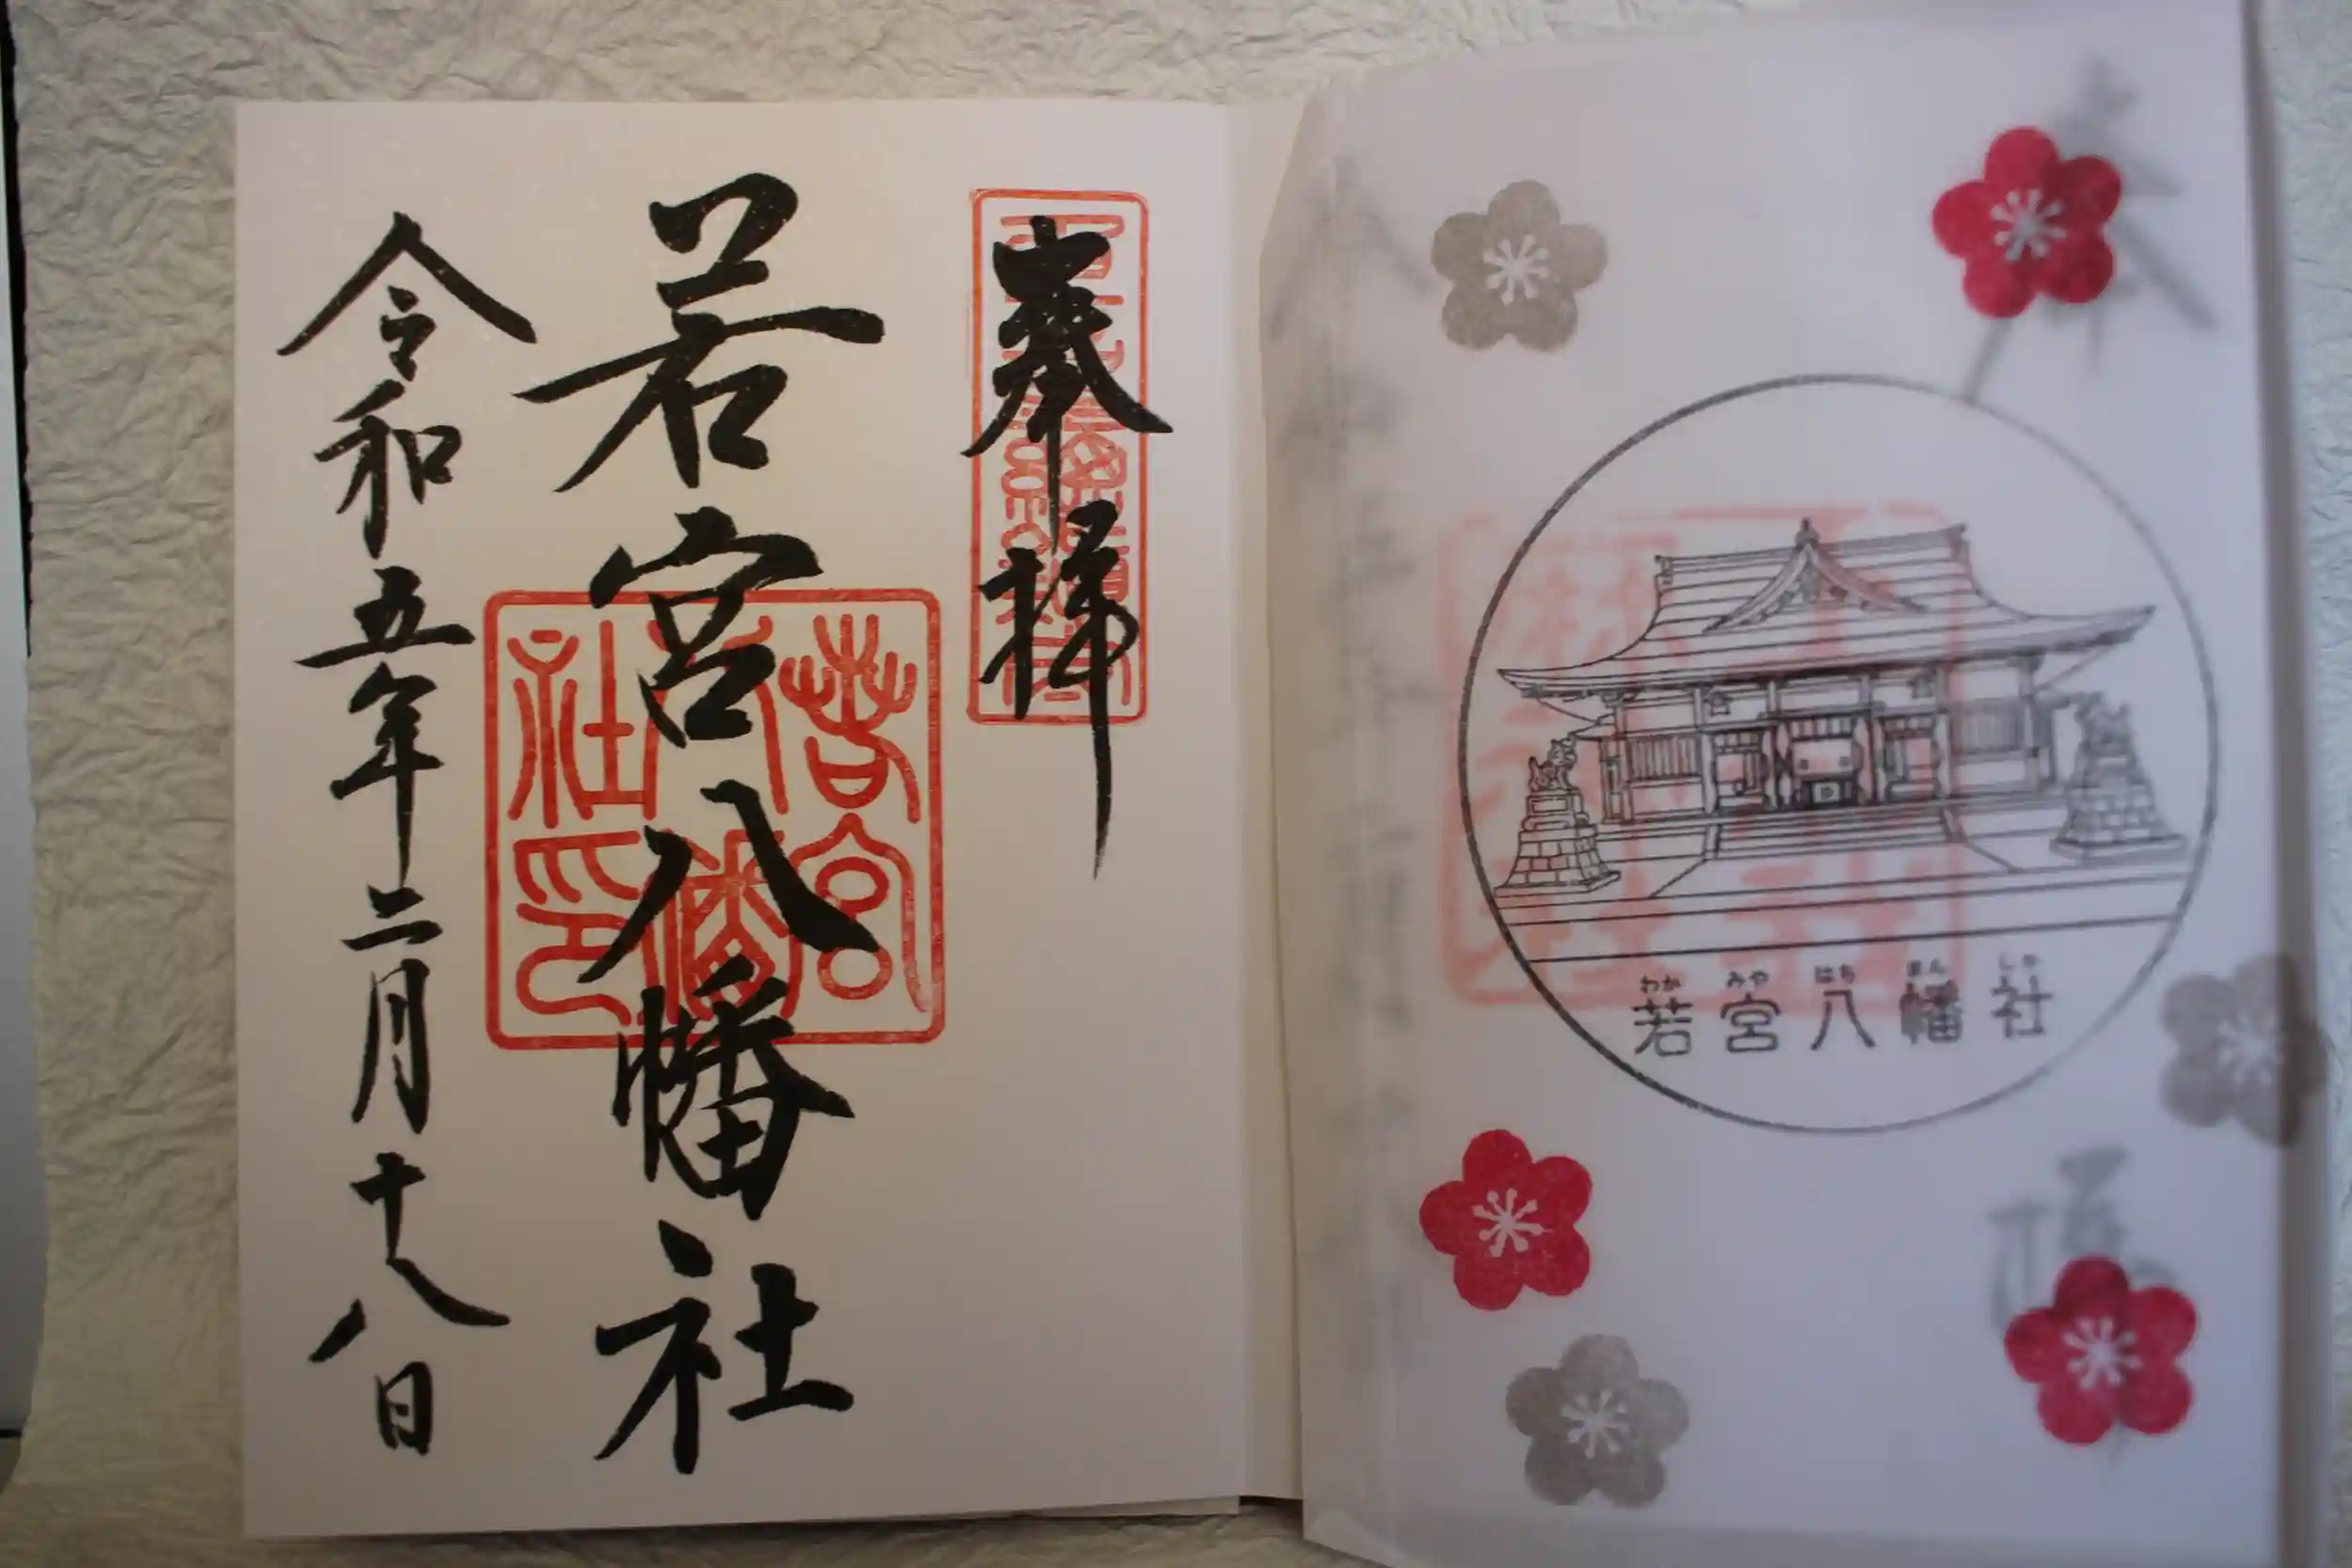 奉拝
若宮八幡社
令和五年二月十八日
若宮八幡社印
わか みや はち まん しゃ
若宮八幡社